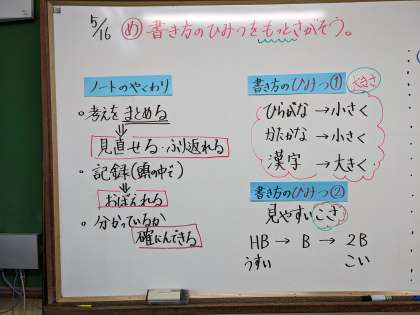 5/16 め 書き方のひみつをもっとさがそう。
ノートのやくわり
○考えをまとめる
⇓
見直せる・ふり返れる
○記録(頭の中で)
⇓
おぼえれる
○分かっているか
確にんできる
書き方のひみつ① 大きさ
ひらがな→小さく
かたかな→小さく
漢字→大きく
書き方のひみつ②
見やすいこさ
HB→B→2B
うすい こい